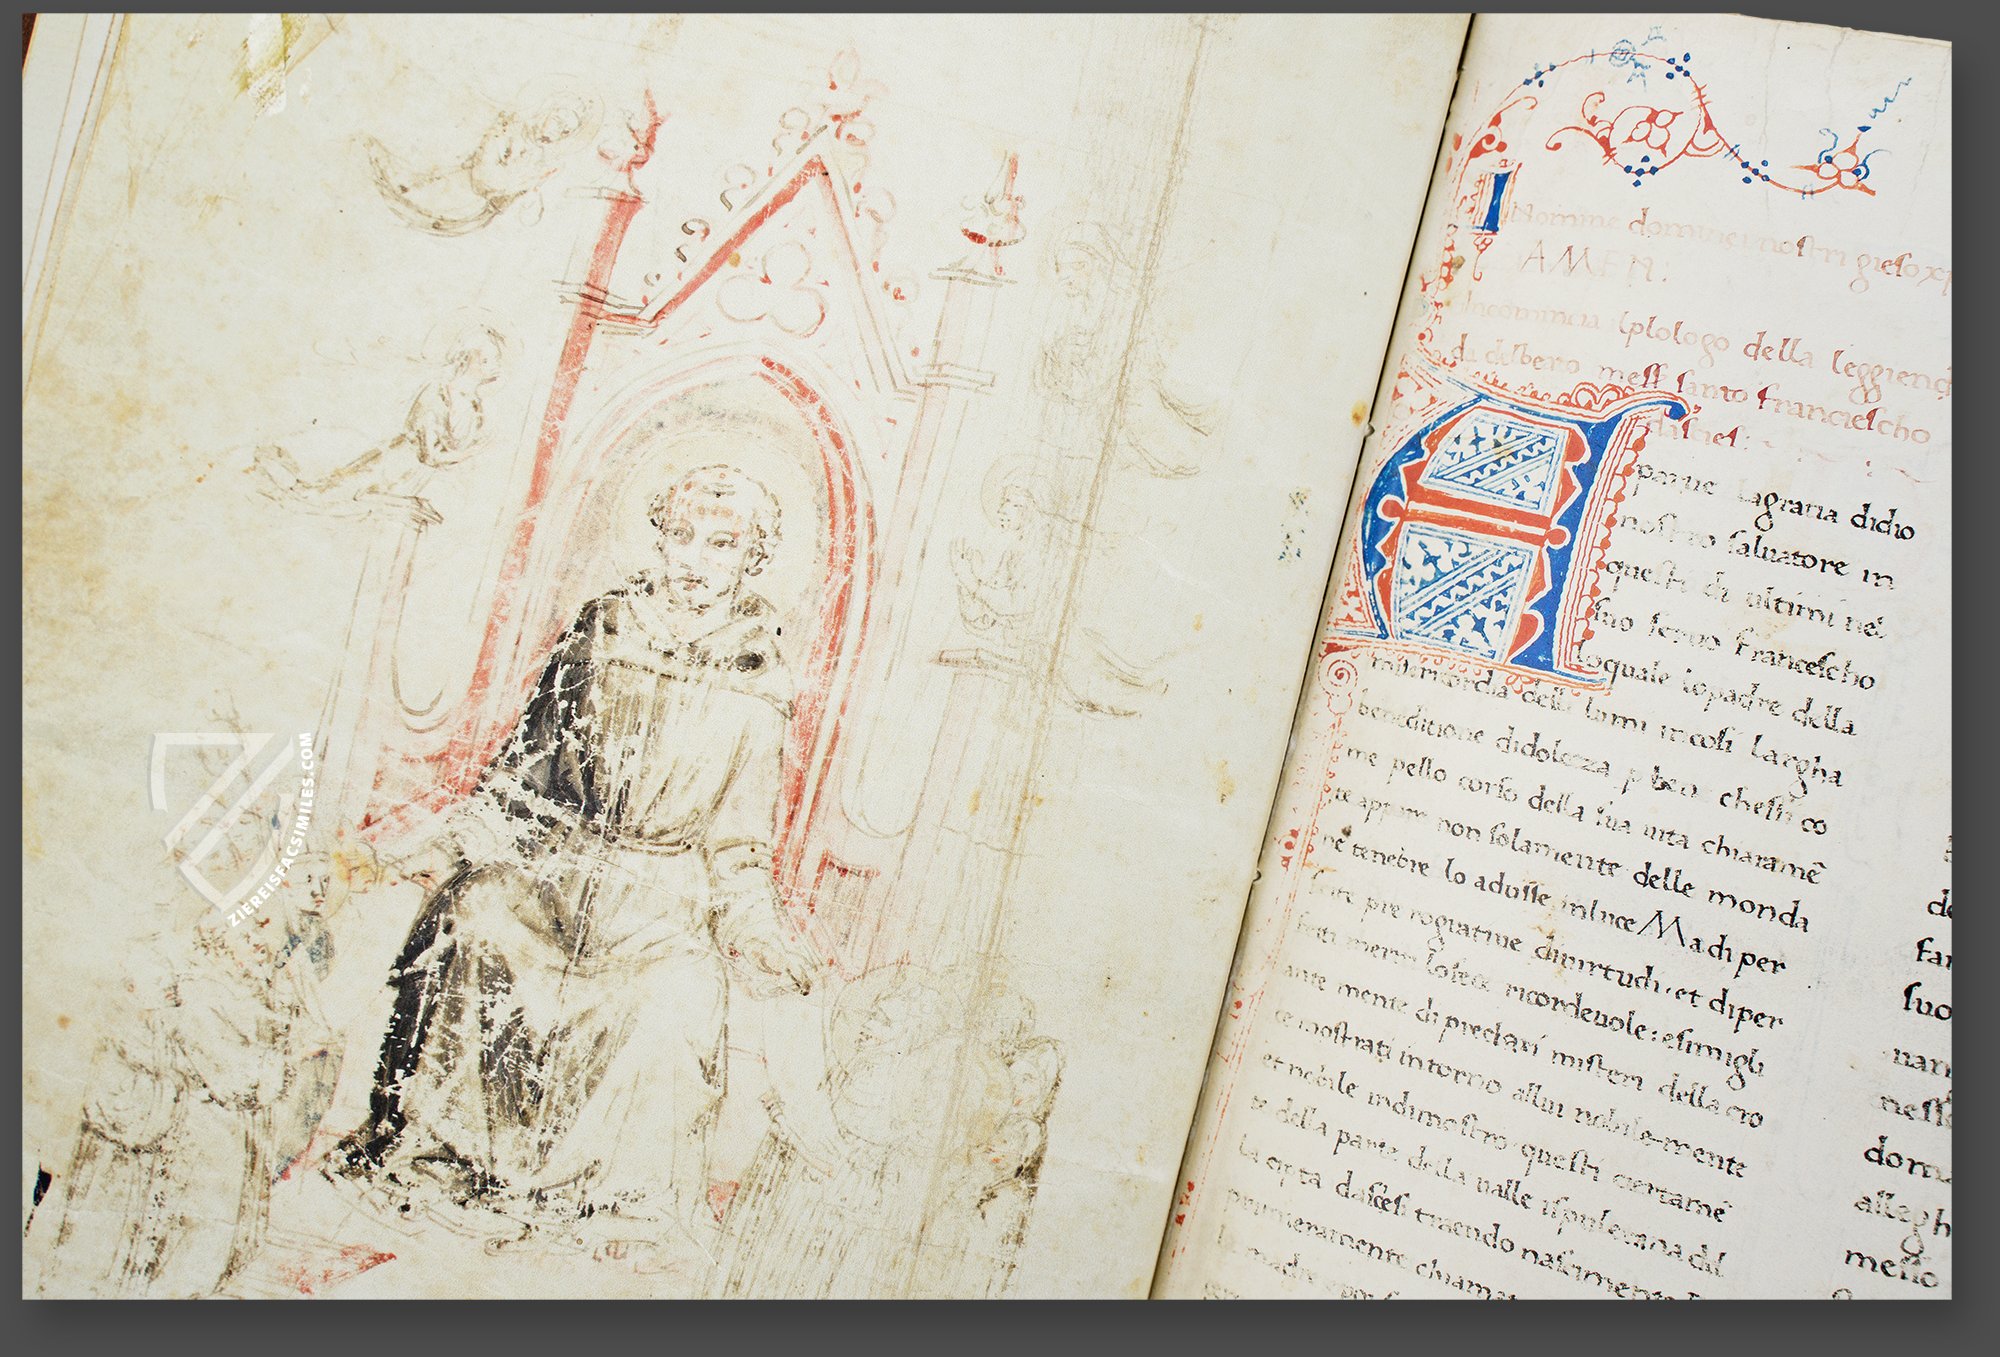 ZIEREISFACSIMILES.COM
Nomine domini nostri gieso xp
AMEN:
Incomincia ilplologo della leggiend
da desbeato mess santo franciescho
dasciesi:
Apparue lagratia didio
nostro saluatore in
questi di ultimi nel
suo seruo francescho
loquale iopadre della
misericordia delli lumi incosi largha
beneditione didolcezza p beo chessi co
me pello corso della sua uita chiaramē
te appare non solamente delle monda
ne tenebre lo adusse inluce Ma di per
pre rogiatiue diuirtudi. et diper
fecti meriti lofece ricordeuole: esimigli
ante mente di preclari misteri della cro
ce mostrati intorno allui nobile-mente
et nobile indimostro. questi certamē
te della parte della ualle ispuletana dil
la cipta dascesi traendo nascimento
primieramente chiamat
la madre
de
fan
suo
uan
nesso
dom
allegh
messo